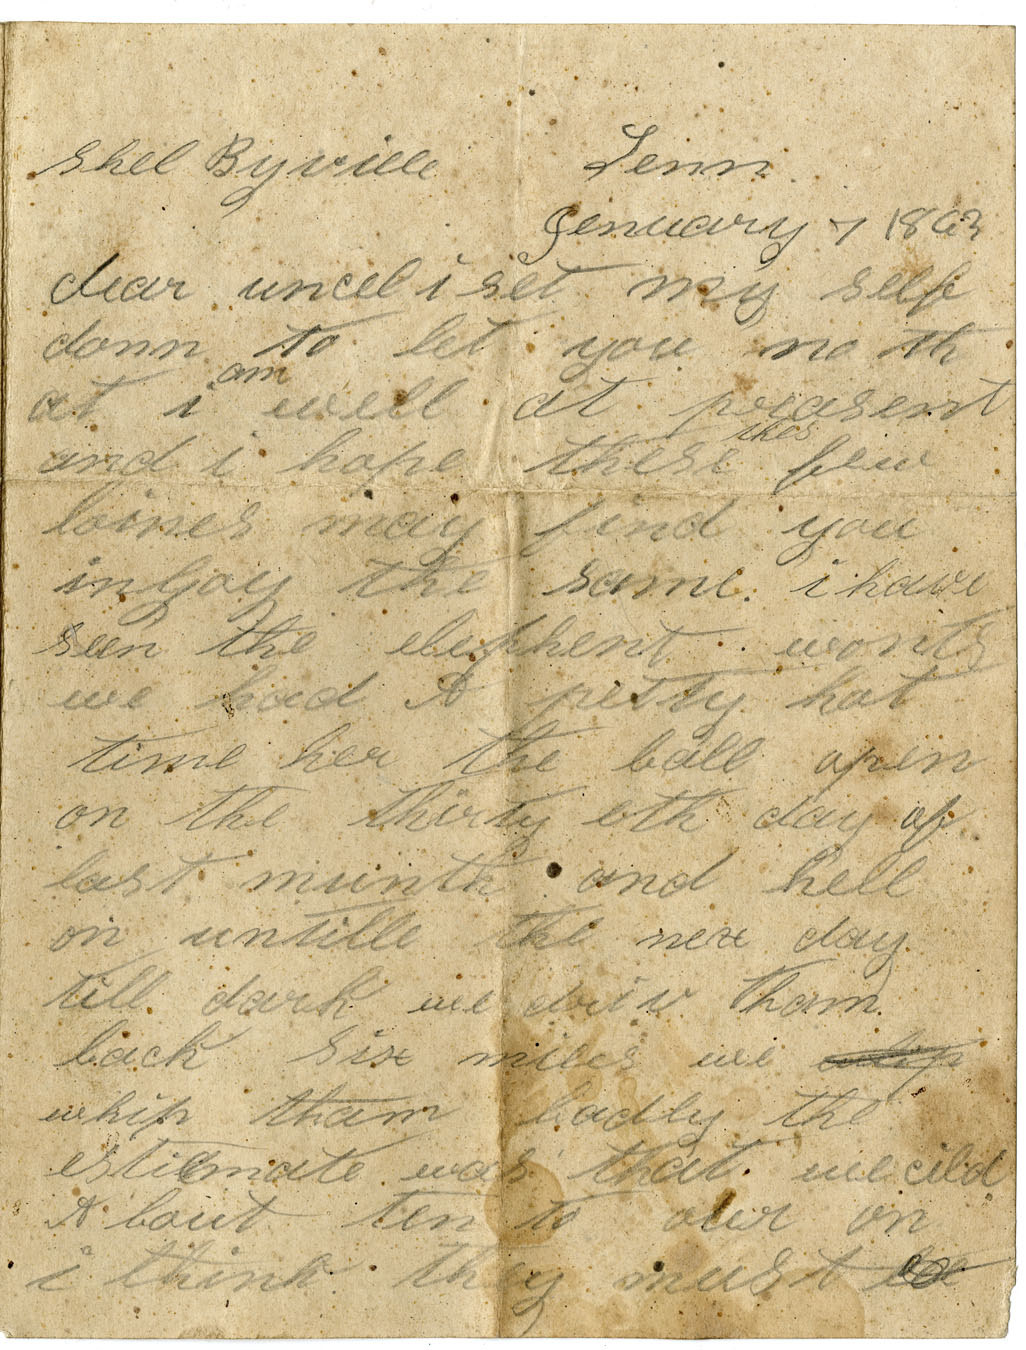 Shel Byville Tenn
Jenuary 7 1863
dear uncel i set my self
donn to let you no th
at i am well at preasent
and i hope these thes few
loines may find you
inJoy the same. i have
seen the elephent wonts
we had A pertty hot
time her the ball open
on the thirty eth day of
last munth and hell
on untille the nex day
till dark we driv tham
back six miles we
whip tham badly the
estiemate was that we cild
A bout ten to our on
i think they must